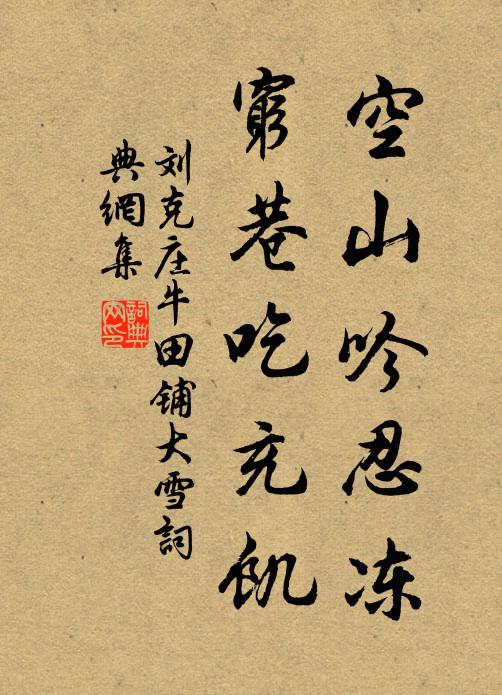 空山吟忍冻
窮巷吃充飢
刘克庄牛田铺大雪詞
典網集
詞典
网印